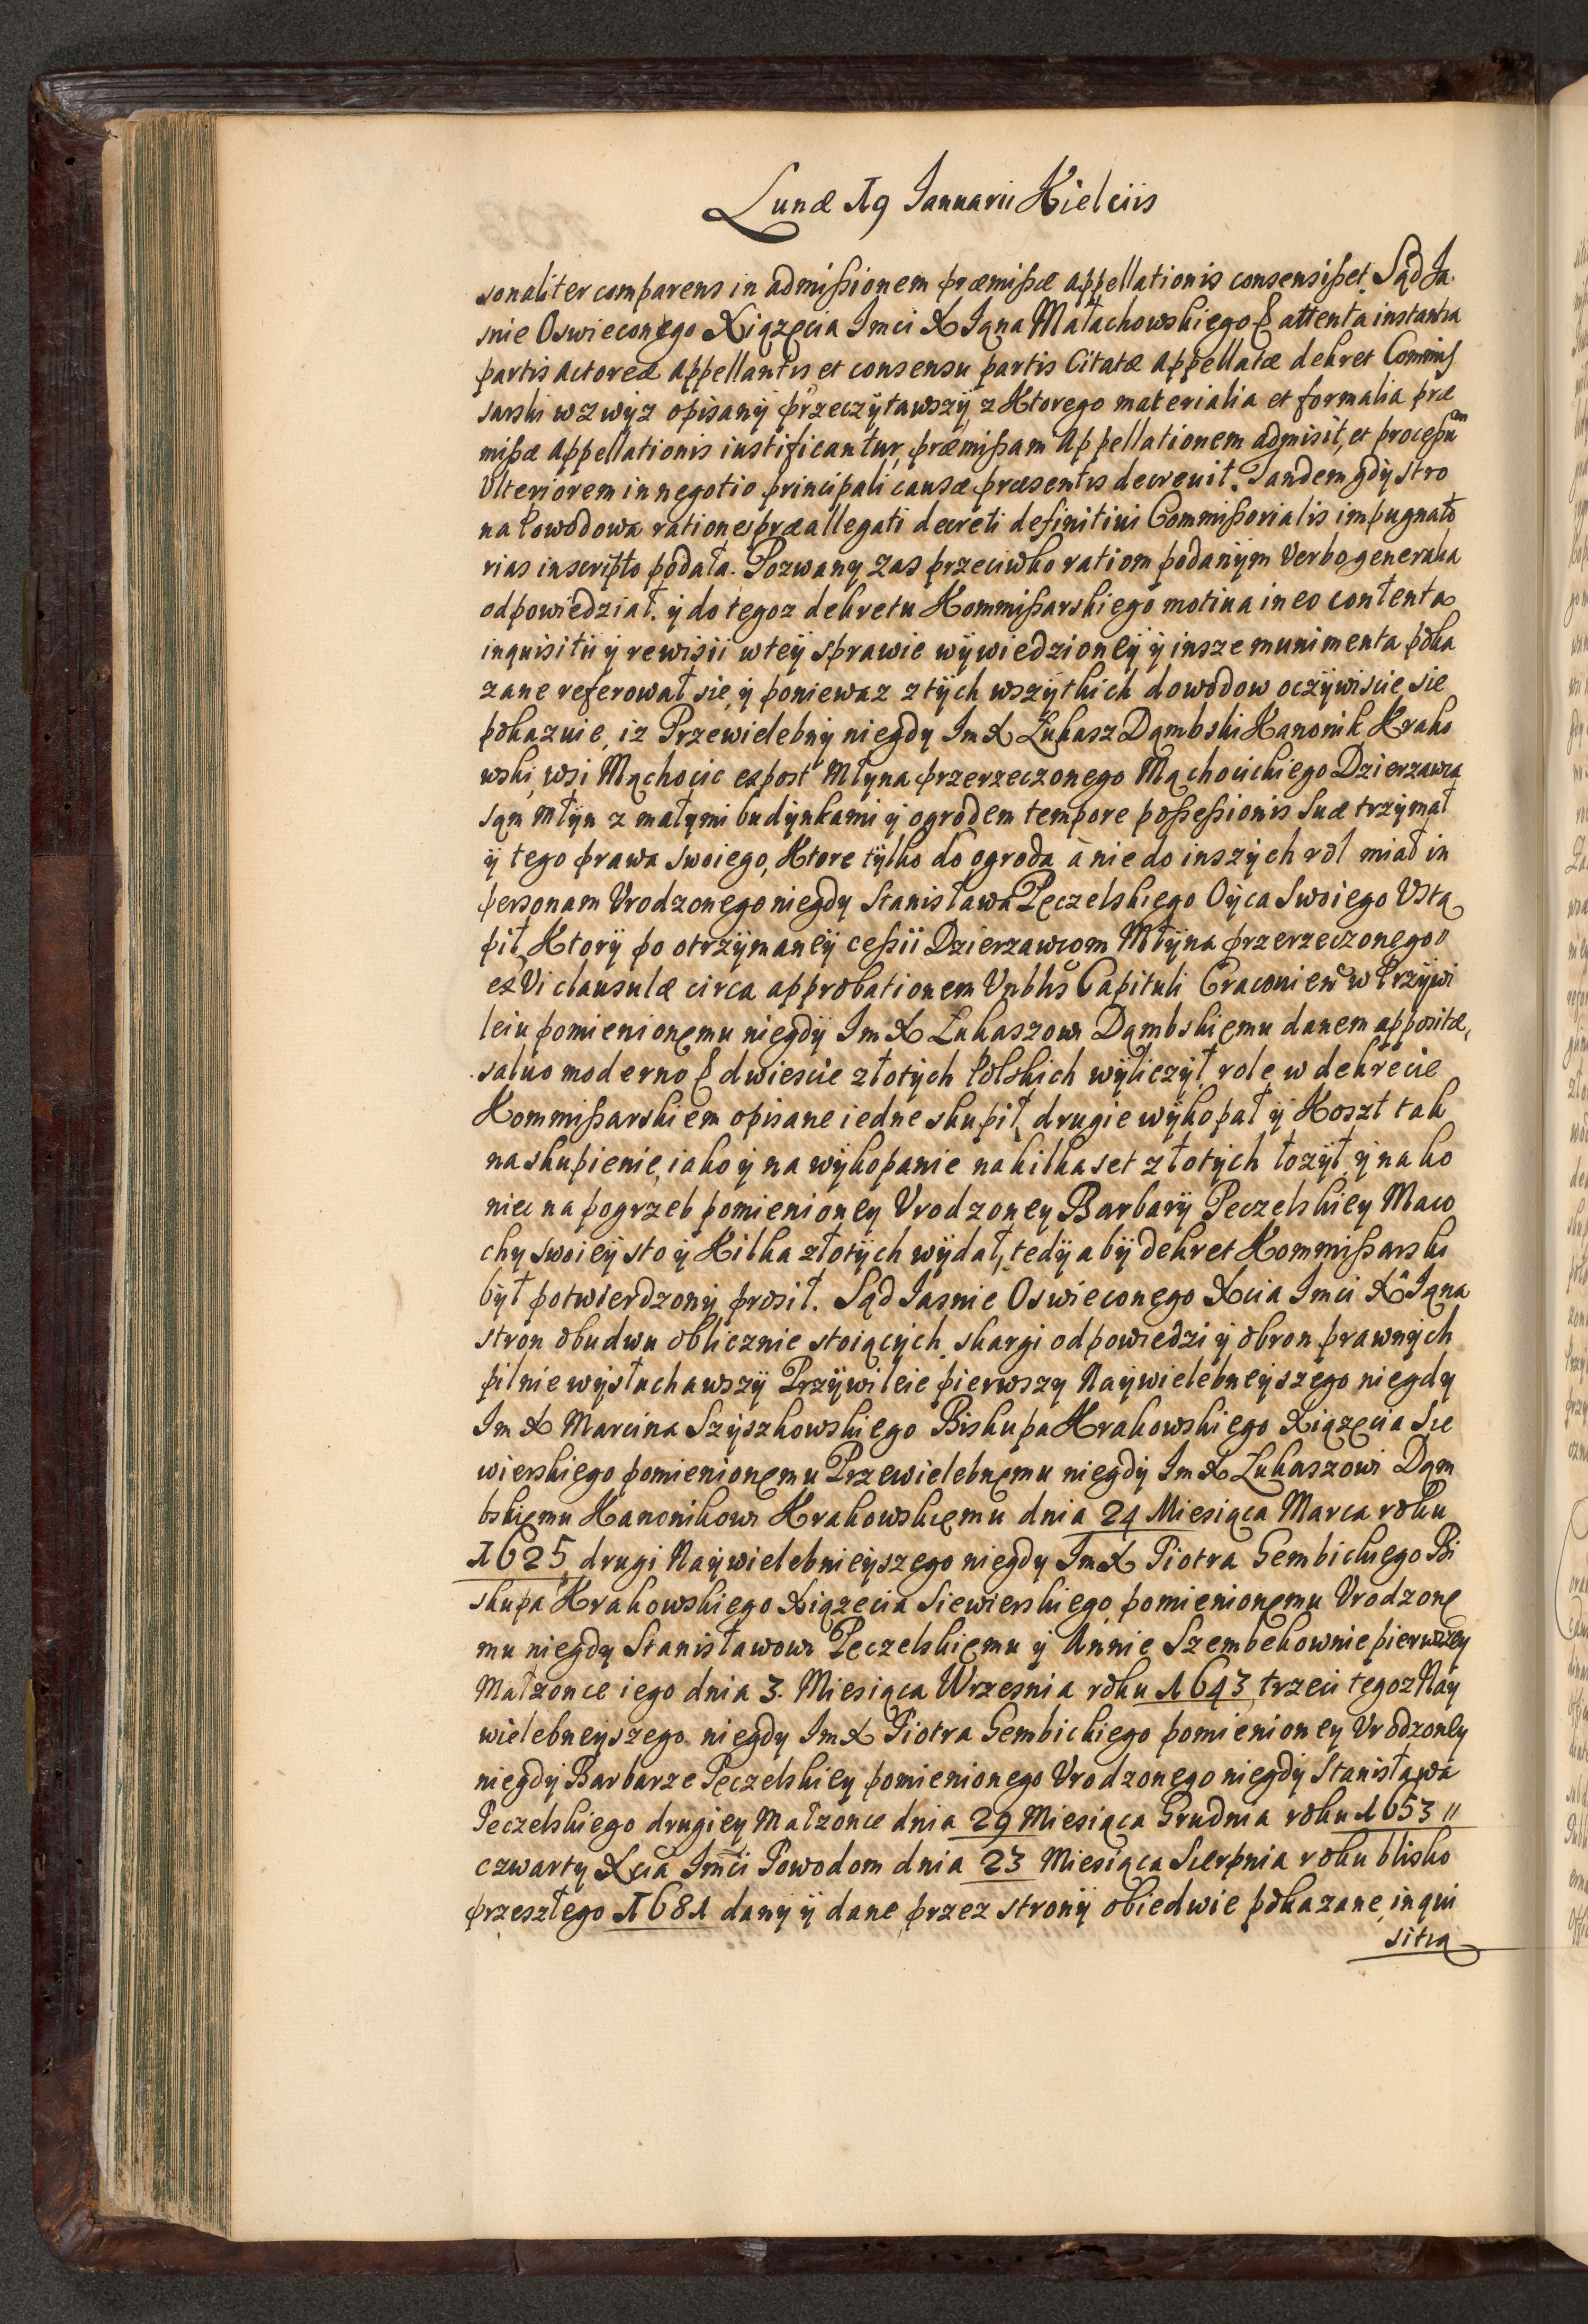 Lunæ 19 Ianuarii Kielciis
sonaliter comparens in admißionem præmißæ appellationis consensißet. Sąd Ia
snie Oswieconego Xiązęcia Imci X Iana Małachowskiego & attenta instantia
partis actoreæ appellantis et consensu partis Citatæ appellatæ dekret Commiß
sarski wzwyz opisany przeczytawszy, z ktorego materialia et formalia præ
mißæ appellationis iustificantur, præmißam Appellationem admisit, et proceßum
Vlteriorem in negotio principali causæ præsentis decreuit. Tandem gdy stro
na Powodowa rationes præallegati decreti definitiui Commißorialis impugnato
rias inscripto podała. Pozwany zas przeciwko ratiom podanym Verbo generalia
odpowiedział. y do tegoz dekretu Kommißarskiego motiua in eo contenta
inquisitii y rewisii w tey sprawie wywiedzioney y insze munimenta poka
zane referował sie, y poniewaz z tych wszytkich dowodow oczywiscie sie
pokazuie, iz Przewielebny niegdy Im X Łukasz Dąmbski Kanonik Krako
wski, wsi Mąchocic expost Młyna przerzeczonego Mąchocickiego Dzierzawca
sąm młyn z małymi budynkami y ogrodem tempore poßeßionis suæ trzymał
y tego prawa swoiego, Ktore tylko do ogroda à nie do inszych rol miał in
personam Vrodzonego niegdy Stanisława Pęczelskiego Oyca Swoiego Vstą
pił, Ktory po otrzymaney ceßii Dzierzawcom Młyna przerzeczonego
ex Vi clausulæ circa approbationem Vnblis Capituli Craconien w Przywi
leiu pomienionęmu niegdy Im X Łukaszowi Dąmbskięmu danem appositæ,
saluo moderno & dwiescie złotych Polskich wyliczył, rolę w dekrecie
Kommißarskiem opisane iedne skupił, drugie wykopał y Koszt tak
na skupienie, iako y na wykopanie na kilkaset złotych łozył, y na ko
niec na pogrzeb pomienioney Vrodzoney Barbary Peczelskiey Maco
chy swoiey sto y Kilka złotych wydał, tedy aby dekret Kommißarski
był potwierdzony prosił. Sąd Iasnie Oswieconego Xcia Imci X Iąna
stron obudwu oblicznie stoiących skargi odpowiedzi y obron prawnych
pilnie wysłuchawszy Przywileie pierwszy Naywielebneyszego niegdy
Im X Marcina Szyszkowskiego Biskupa Krakowskiego Xiązęcia Sie
wierskiego pomienionęmu Przewielebnęmu niegdy Im X Łukaszowi Dąm
bskięmu Kanonikowi Krakowskięmu dnia 24 Miesiąca Marca roku
1625, drugi Naywielebnieyszego niegdy Im X Piotra Gembickiego Bi
skupa Krakowskiego Xiązecia Siewierskiego pomienionęmu Vrodzonę
mu niegdy Stanisławowi Peczelskięmu y Annie Szembekownie pierwszey
Małzonce iego dnia 3. Miesiąca Wrzesnia roku 1643 trzeci tegoz Nay
wielebneyszego niegdy Im X Piotra Gembickiego pomienioney Vrodzoney
niegdy Barbarze Pęczelskiey pomienionego Vrodzonego niegdy Stanisława
Peczelskiego drugiey Małzonce dnia 29 Miesiąca Grudnia roku 1653 //
czwarty Xcia Imci Powodom dnia 23 Miesiąca Sierpnia roku blisko
przeszłego 1681 dany y dane przez strony obiedwie pokazane, inqui
sitią